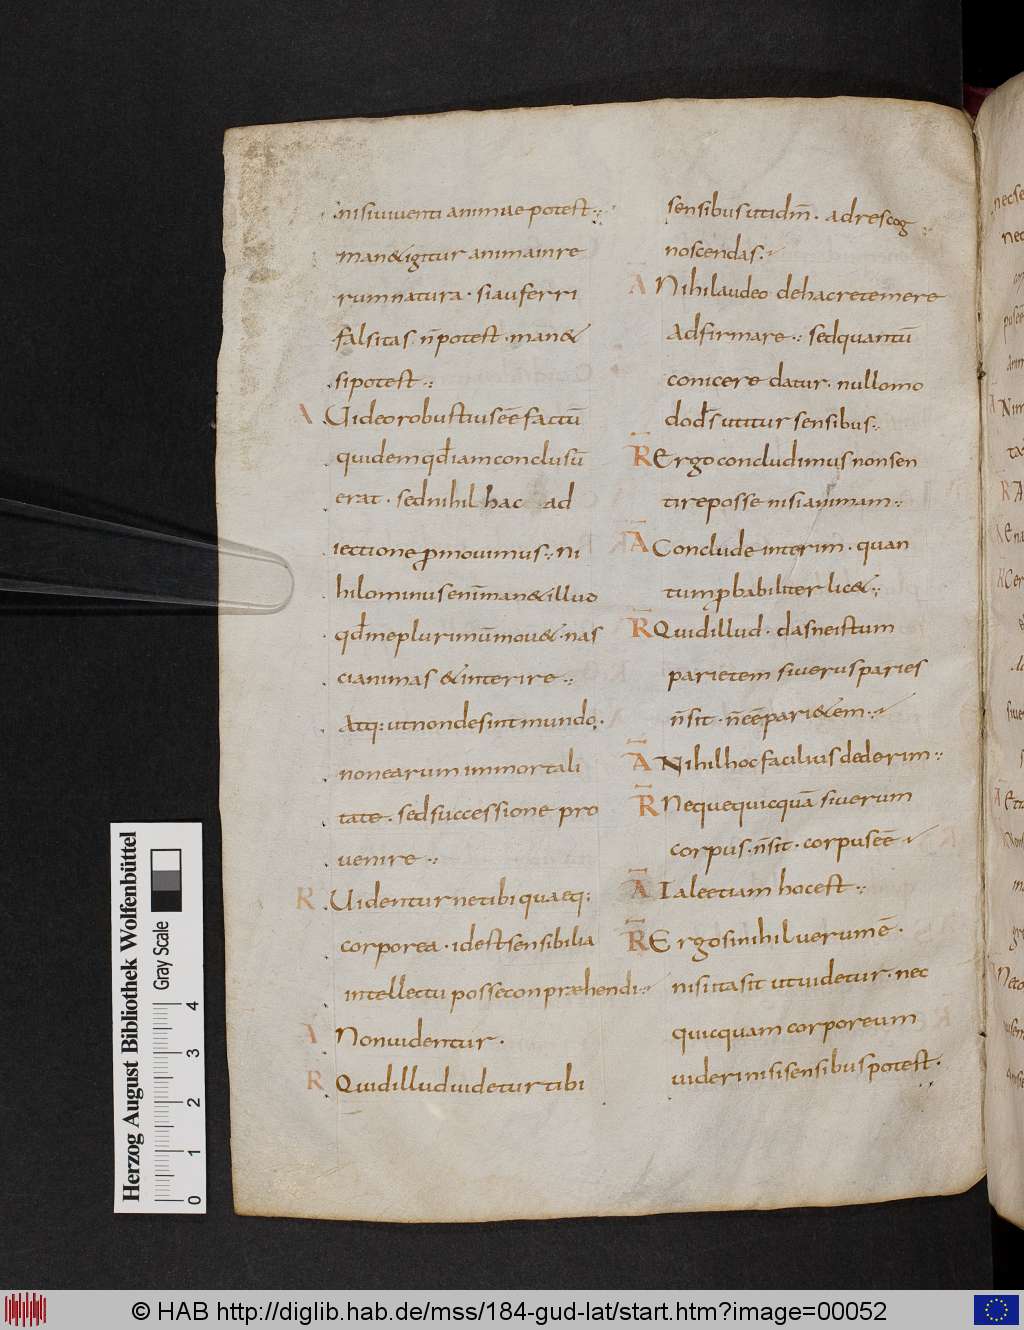 nisi uiuenti animae potest
man& igitur anima inre
rum natura · si auferri
falsitas n̄ potest · man&
si potest
A Uideo robustius eē factū
quidem qđ iam conclusū
erat · sed nihil hac ad
iectione promouimus ni
hilominus enīm man& illud
qđ me plurimū mou& · nas
ci animas & interire
Atq: ut non desint mundo ·
non earum inmortali
tate · sed successione pro
uenire
R Uidentur ne tibi quaeq:
corporea · id est sensibilia
intellectu posse conpræhendi
A Non uidentur ·
R Quid illud uidetur tibi
sensibus uti dm̄ · ad res cog
noscendas
A Nihil audeo de hac re temere
adfirmare sed quantū
conicere datur · nullo mo
do dš utitur sensibus
R Ergo concludimus non sen
tire posse nisi animam
A Conclude interim · quan
tum probabiliter lic&
R Quid illud · dasne istum
parietem si uerus paries
n̄ sit · n̄ eē pari&em
A Nihil hoc facilius dederim
R Neque quicquā si uerum
corpus · n̄ sit · corpus eē
A Tale etiam hoc est
R Ergo si nihil uerum ē ·
nisi ita sit ut uidetur · nec
quicquam corporeum
uideri nisi sensibus potest ·
Herzog August Bibliothek Wolfenbüttel
Gray Scale
0 1 2 3 4
© HAB http://diglib.hab.de/mss/184-gud-lat/start.htm?image=00052